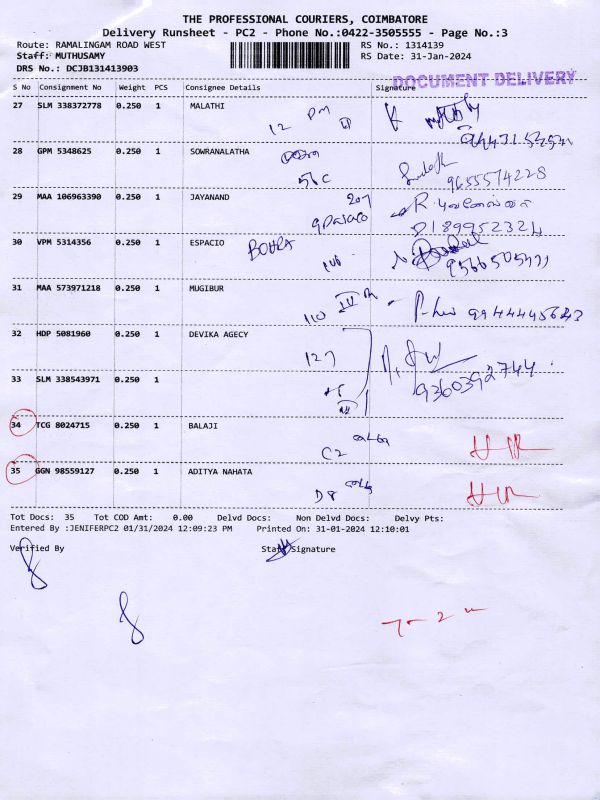 THE PROFESSIONAL COURIERS, COIMBATORE
Delivery Runsheet - PC2 - Phone No.:0422-3505555 - Page No.:3
Route: RAMALINGAM ROAD WEST RS No.: 1314139
Staff: MUTHUSAMY RS Date: 31-Jan-2024
DRS No.: DCJB131413903
DOCUMENT DELIVERY
S No Consignment No Weight PCS Consignee Details Signature
27 SLM 338372778 0.250 1 MALATHI
12
28 GPM 5348625 0.250 1 SOWRANALATHA
9655574228
29 MAA 106963390 0.250 1 JAYANAND
207
30 VPM 5314356 0.250 1 ESPACIO BOHRA
9566505371
31 MAA 573971218 0.250 1 MUGIBUR
110
9944445643
32 HDP 5081960 0.250 1 DEVIKA AGECY
127
9360392744
33 SLM 338543971 0.250 1
34 TCG 8024715 0.250 1 BALAJI
C2
35 GGN 98559127 0.250 1 ADITYA NAHATA
D8
Tot Docs: 35 Tot COD Amt: 0.00 Delvd Docs: Non Delvd Docs: Delvy Pts:
Entered By :JENIFERPC2 01/31/2024 12:09:23 PM Printed On: 31-01-2024 12:10:01
Verified By Staff Signature